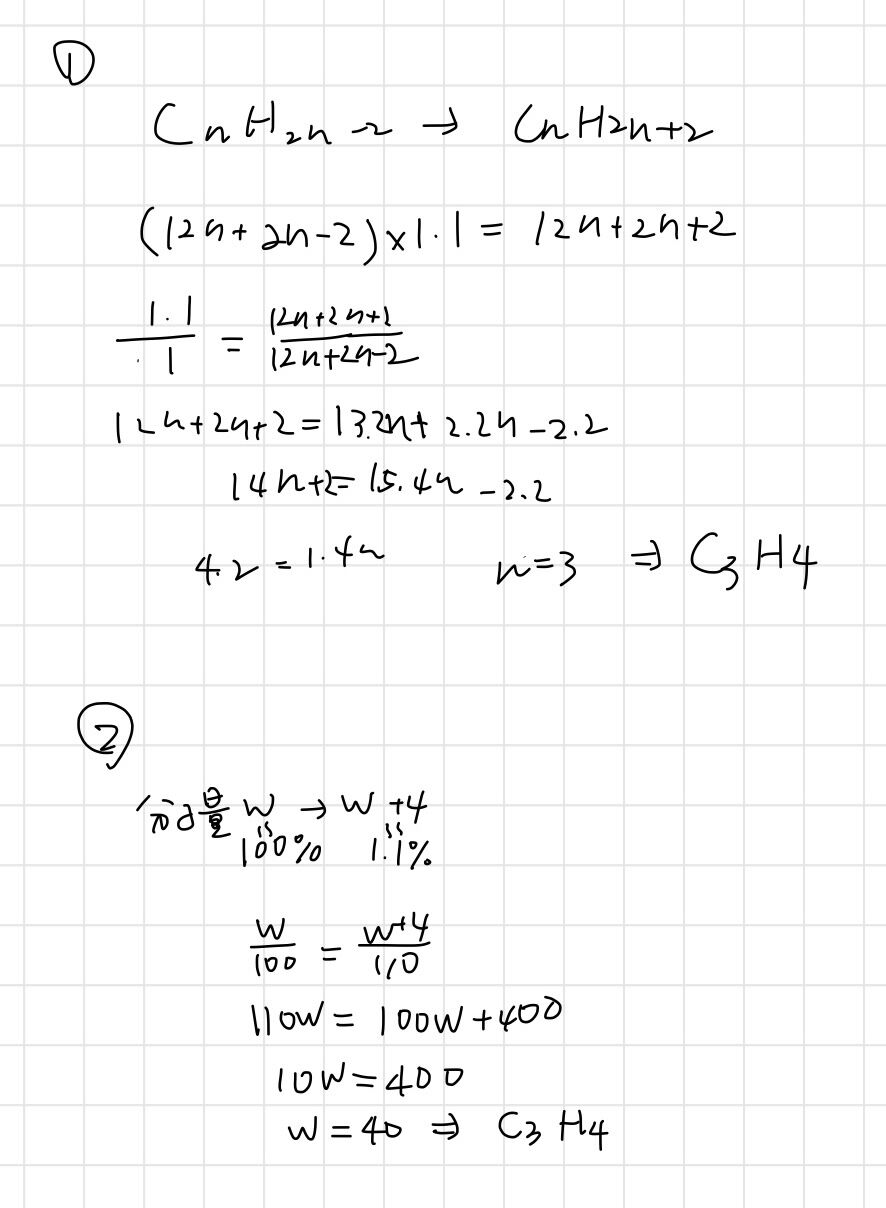 ①
CnH2n-2 → CnH2n+2
(12n+2n-2)×1.1 = 12n+2n+2
1.1/1 = 12n+2n+2/12n+2n-2
12n+2n+2 = 13.2n+2.2n-2.2
14n+2 = 15.4n-2.2
4.2 = 1.4n n=3 ⇒ C3H4
②
分子量 W → W+4
100% 1.1%
W/100 = W+4/110
110W = 100W+400
10W = 400
W = 40 ⇒ C3H4